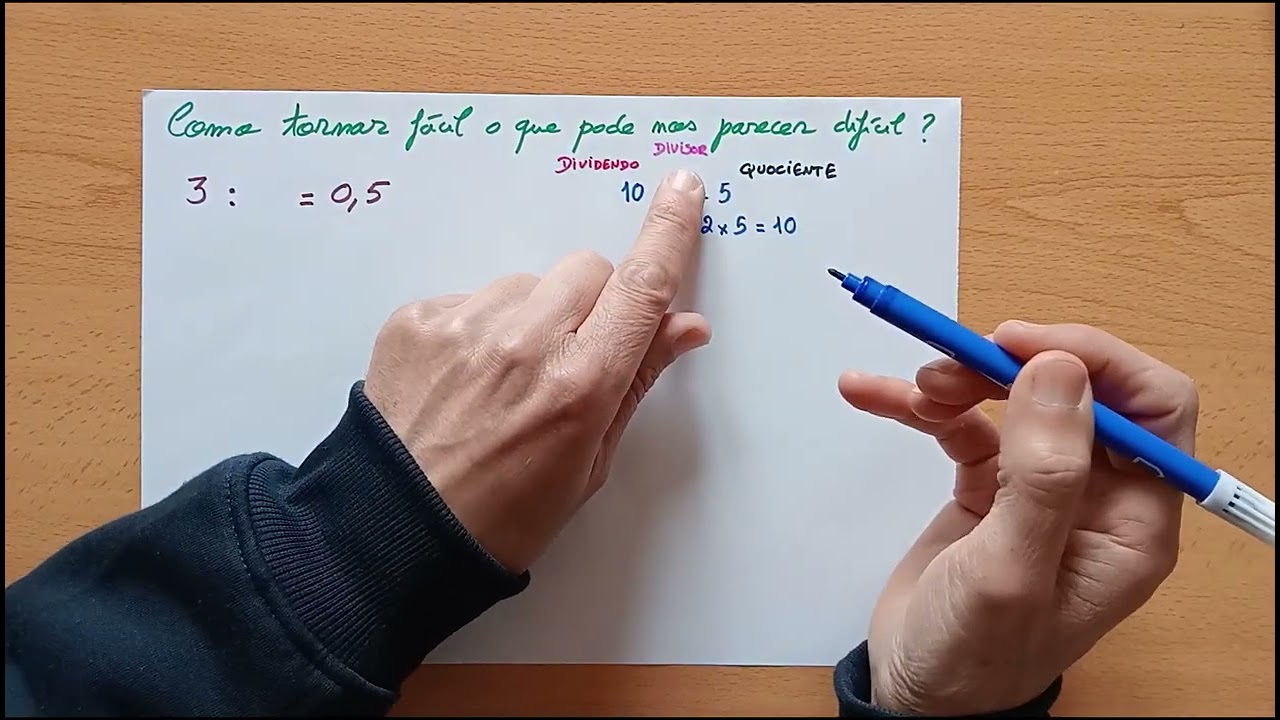 Como tornar fácil o que pode nos parecer difícil ?
DIVIDENDO DIVISOR QUOCIENTE
3 : = 0,5
10 5
2 x 5 = 10